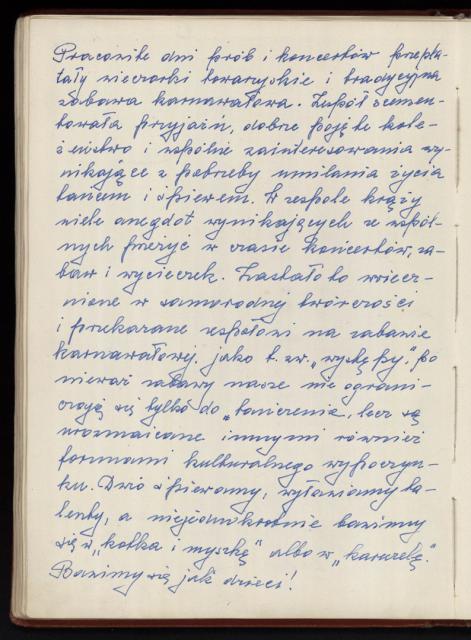 Pracowite dni prób i koncertów przepla-
tały wieczorki towarzyskie i tradycyjna
zabawa karnawałowa. Zespół scemen-
towała przyjaźń, dobrze pojęte kole-
żeństwo i wspólne zainteresowania wy-
nikające z potrzeby umilania życia
tańcem i śpiewem. W zespole krąży
wiele anegdot wynikających ze wspól-
nych przeżyć w czasie koncertów, za-
baw i wycieczek. Zostało to uwiecz-
nione w samorodnej twórczości
i przekazane zespołowi na zabawie
karnawałowej, jako t. zw. „występy". Po
nieważ zabawy nasze nie ograni-
czają się tylko do „tańczenia, lecz są
urozmaicane innymi również
formami kulturalnego wypoczyn-
ku. Dużo śpiewamy, wyławiamy ta-
lenty, a niejednokrotnie bawimy
się w „kotka i myszkę" albo w „karuzelę".
Bawimy się jak dzieci!